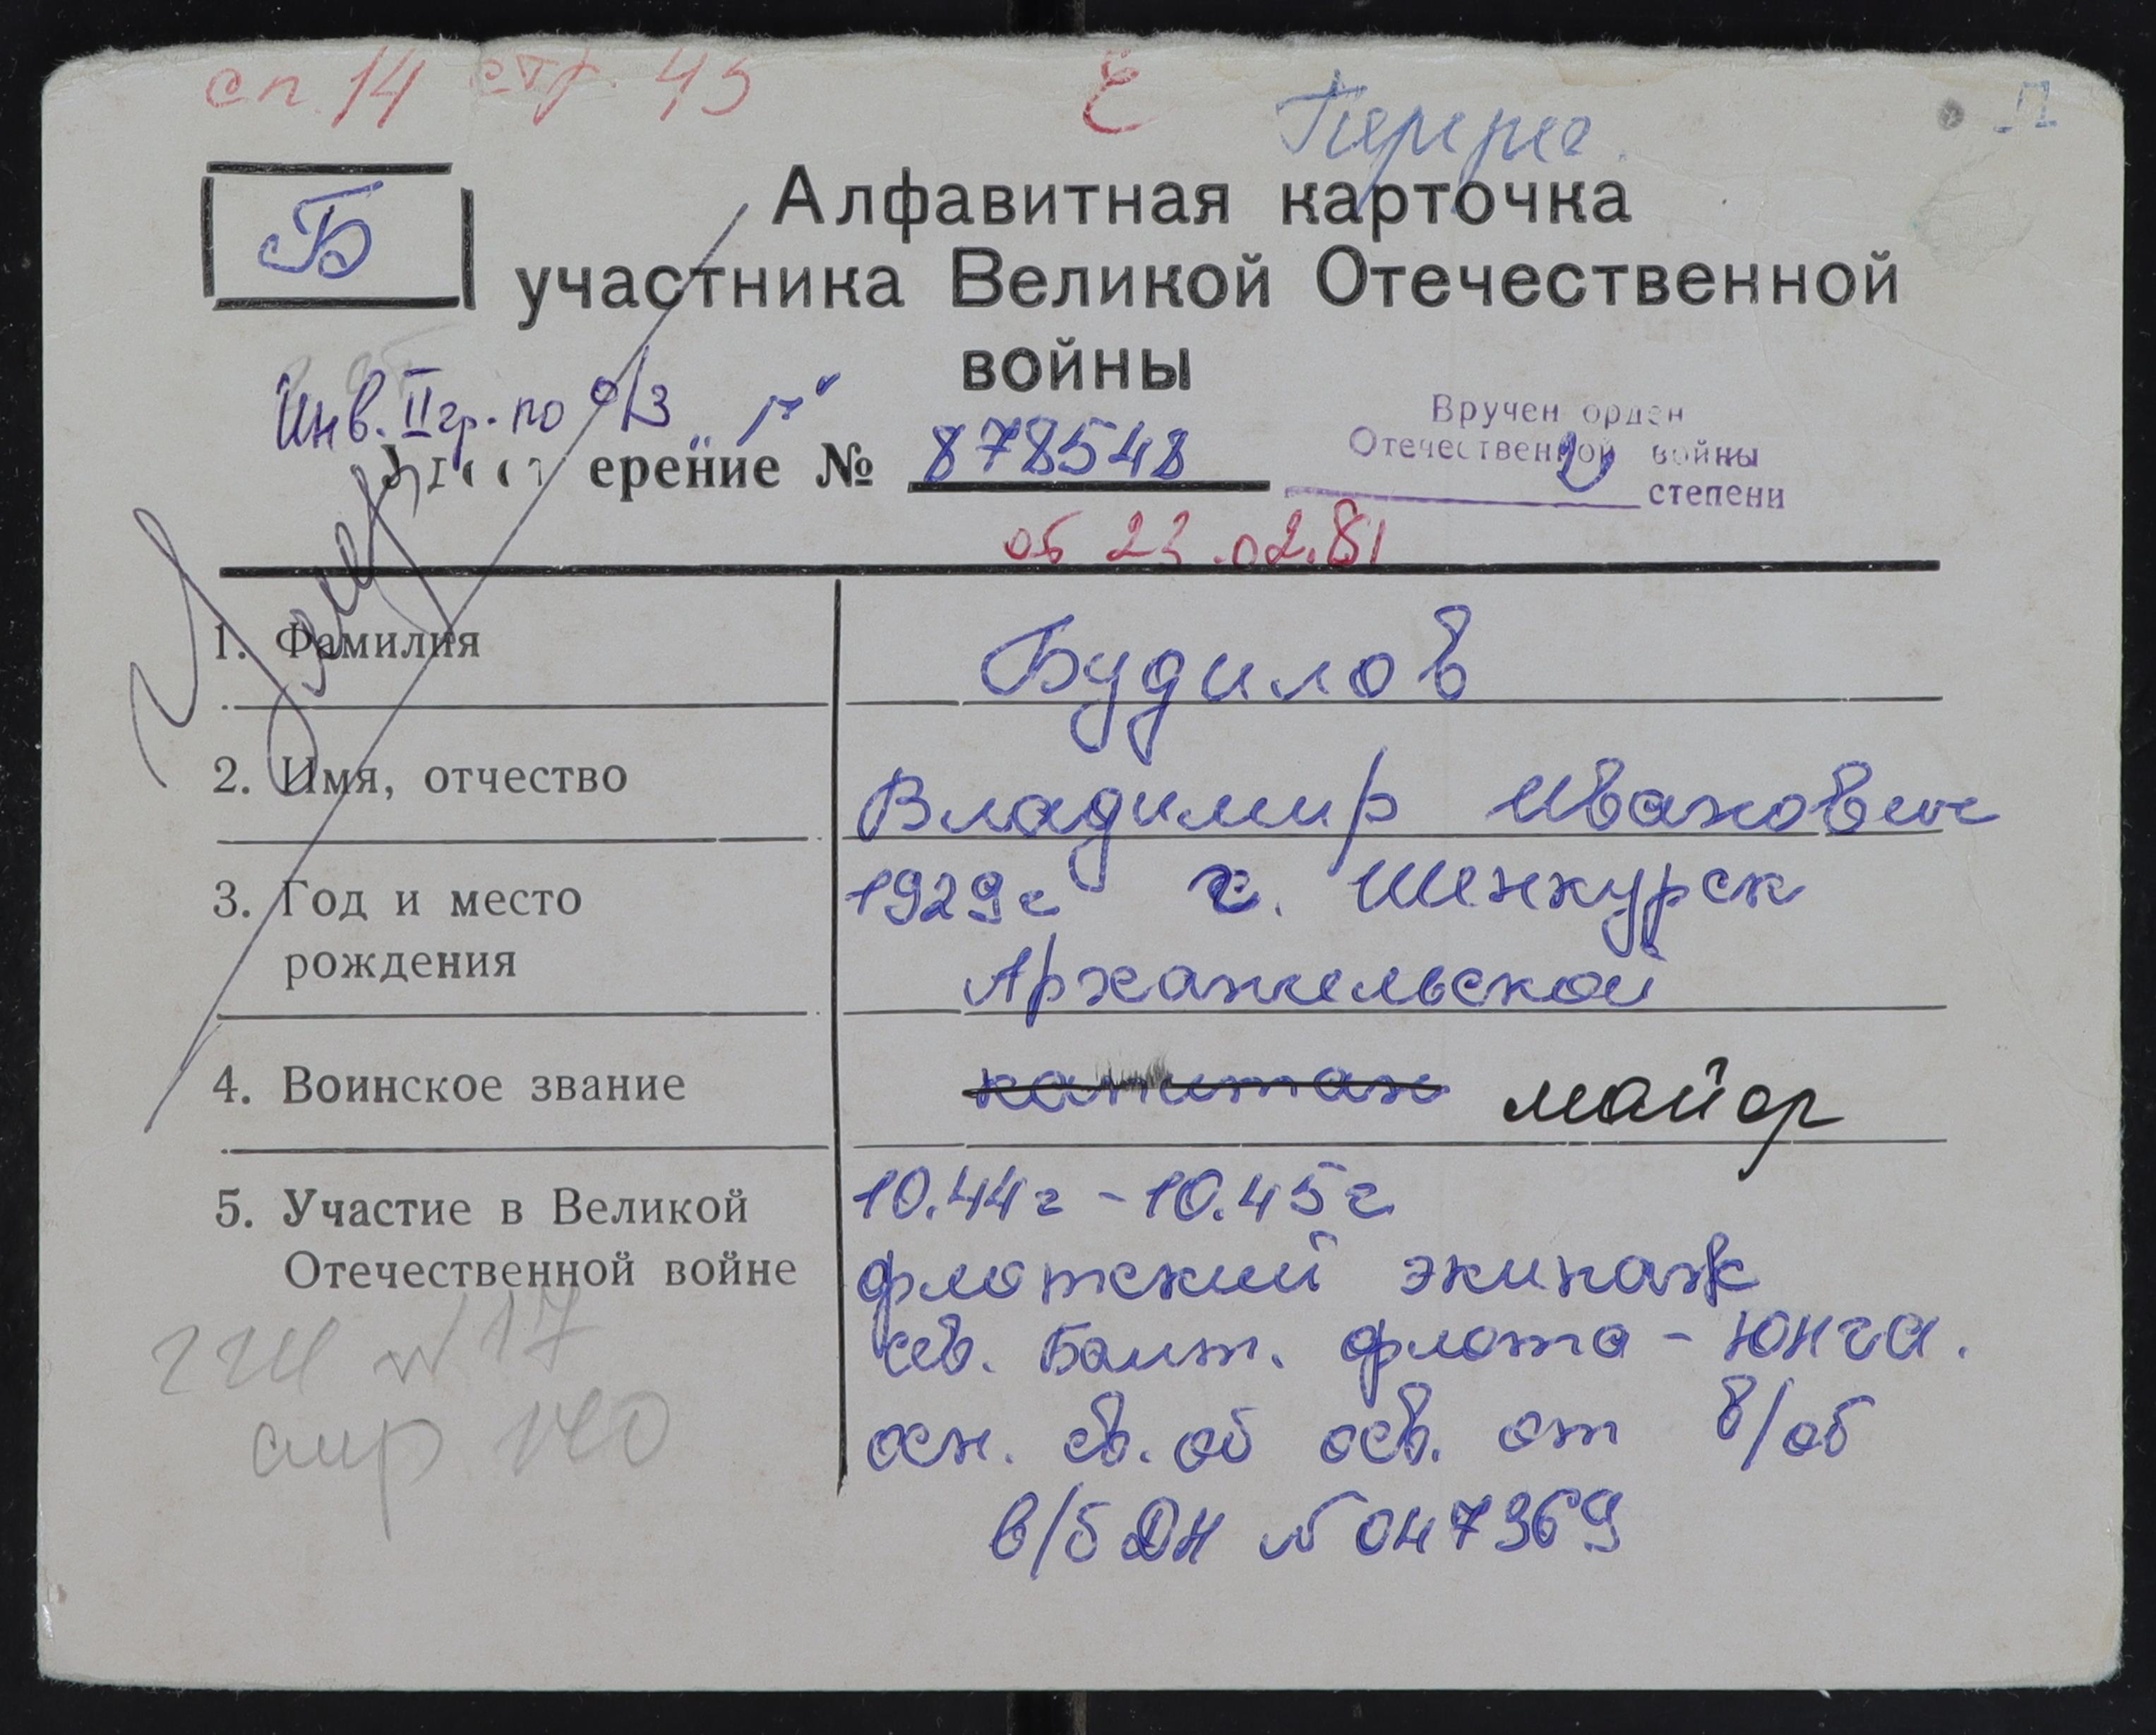 сп. 14 стр. 45
Перерег.
Б
Алфавитная карточка
участника Великой Отечественной
войны
Инв. II гр. по о/з
Вручен орден
Отечественной войны
степени
ерение № 878548
об 23.02.81
Умер
1. Фамилия
Будилов
2. Имя, отчество
Владимир Иванович
3. Год и место
рождения
1929г г. Шенкурск
Архангельской
4. Воинское звание
капитан майор
5. Участие в Великой
Отечественной войне
10.44г - 10.45г
флотский экипаж
сев. Балт. флота - юнга.
осн. св. об осв. от в/об
в/б ДН № 047369
№ 17
стр 140